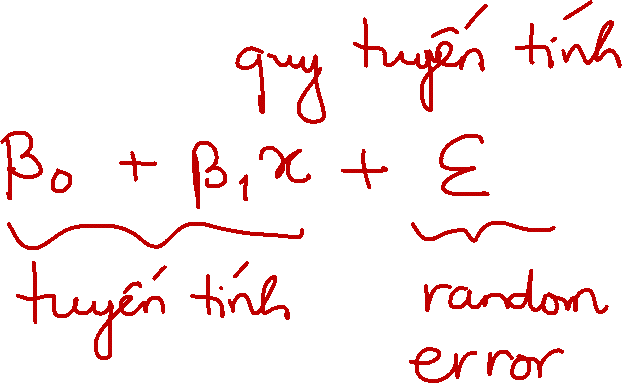 quy tuyến tính
β₀ + β₁x + ε
tuyến tính
random
error